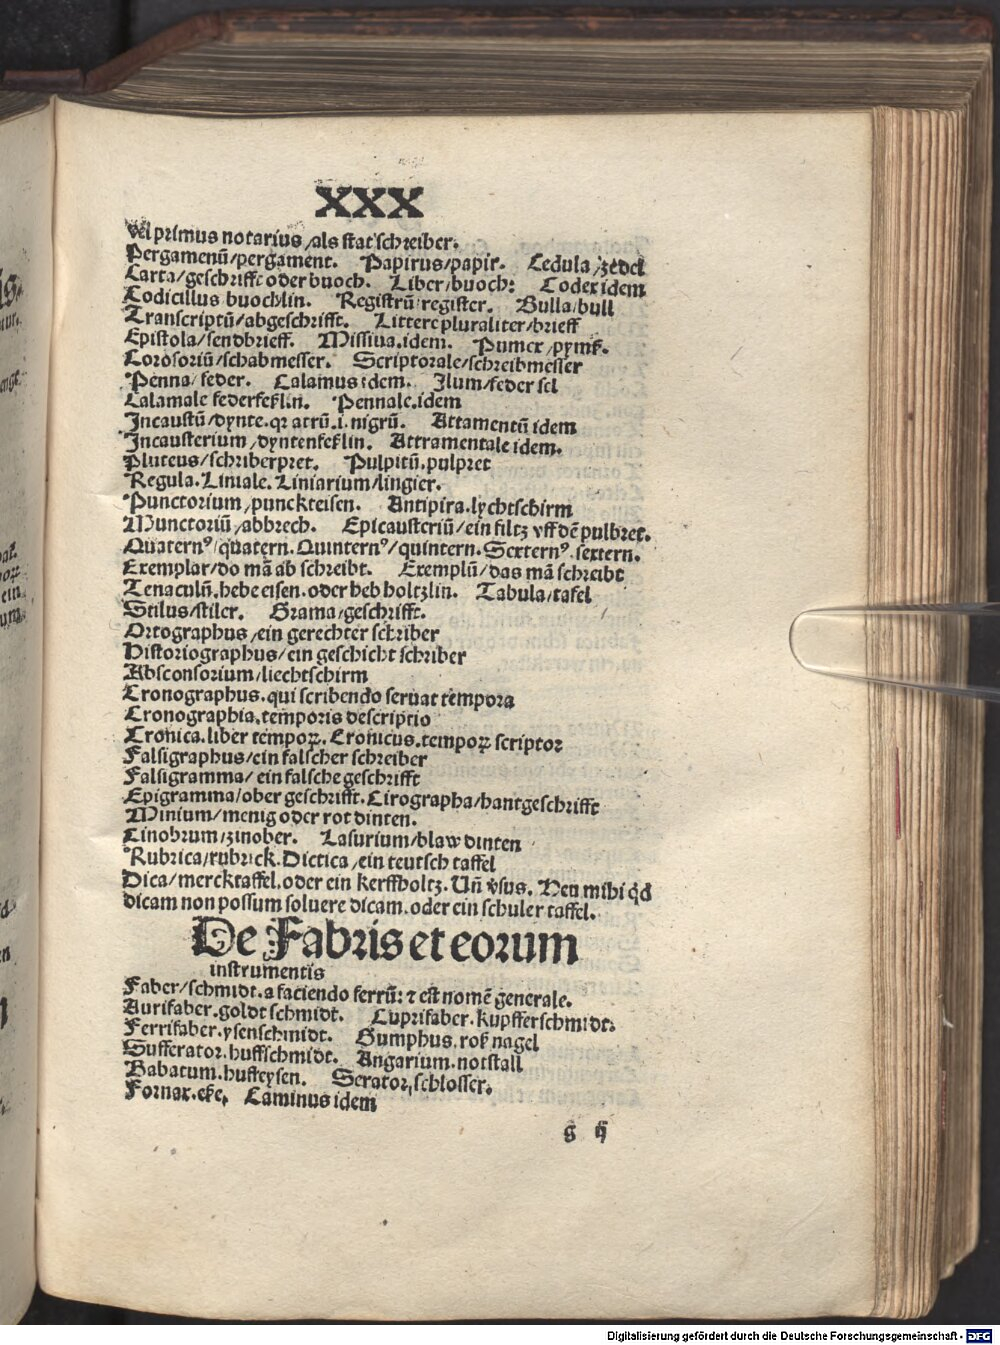 XXX
vel primus notarius/als stat schreiber.
Pergamenū/pergament. Papirus/papir. Cedula/zedel
Carta/geschrifft oder buoch. Liber/buoch: Codex idem
Codicillus buochlin. Registrū register. Bulla/bull
Transcriptū/abgeschrifft. Littere pluraliter/brieff
Epistola/sendbrieff. Missiua.idem. Pumex/pymß.
Corosoriū/schabmesser. Scriptorale/schreibmesser
Penna/feder. Calamus idem. Ilum/feder sel
Calamale federkeßlin. Pennale.idem
Incaustū/dynte.qꝛ atrū.i.nigrū. Attamentū idem
Incausterium/dyntenkeßlin. Attramentale idem.
Pluteus/schriberpret. Pulpitū.pulpret
Regula.Liniale.Liniarium/lingier.
Punctorium/punckteisen. Antipira.lychtschirm
Munctoriū/abbrech. Epicausteriū/ein filtz vff dē pulbret.
Quaternꝰ/quatern.Quinternꝰ/quintern.Sexternꝰ.sextern.
Exemplar/do mā ab schreibt. Exemplū/das mā schreibt
Tenaculū.hebe eisen.oder heb holtzlin. Tabula/tafel
Stilus/stiler. Grama/geschrifft.
Ortographus/ein gerechter schriber
Historiographus/ein geschicht schriber
Absconsorium/liechtschirm
Cronographus.qui scribendo seruat tempora
Cronographia.temporis descriptio
Cronica.liber tempoꝝ.Cronicus.tempoꝝ scriptor
Falsigraphus/ein falscher schreiber
Falsigramma/ein falsche geschrifft
Epigramma/ober geschrifft.Cirographa/hantgeschrifft
Minium/menig oder rot dinten.
Cinobrum/zinober. Lasurium/blaw dinten
Rubrica/rubrick.Dictica/ein teutsch taffel
Dica/mercktaffel.oder ein kerffholtz.Uñ v̄sus. Heu mihi qd
dicam non possum soluere dicam.oder ein schuler taffel.
De Fabris et eorum
instrumentis
Faber/schmidt.a faciendo ferrū: ⁊ est nomē generale.
Aurifaber.goldtschmidt. Cuprifaber.kupfferschmidt.
Ferrifaber.ysenschmidt. Gumphus.roß nagel
Sufferator.huffschmidt. Angarium.notstall
Babatum.huffeysen. Serator/schlosser.
Fornax.eße. Caminus idem
g ij
Digitalisierung gefördert durch die Deutsche Forschungsgemeinschaft - DFG